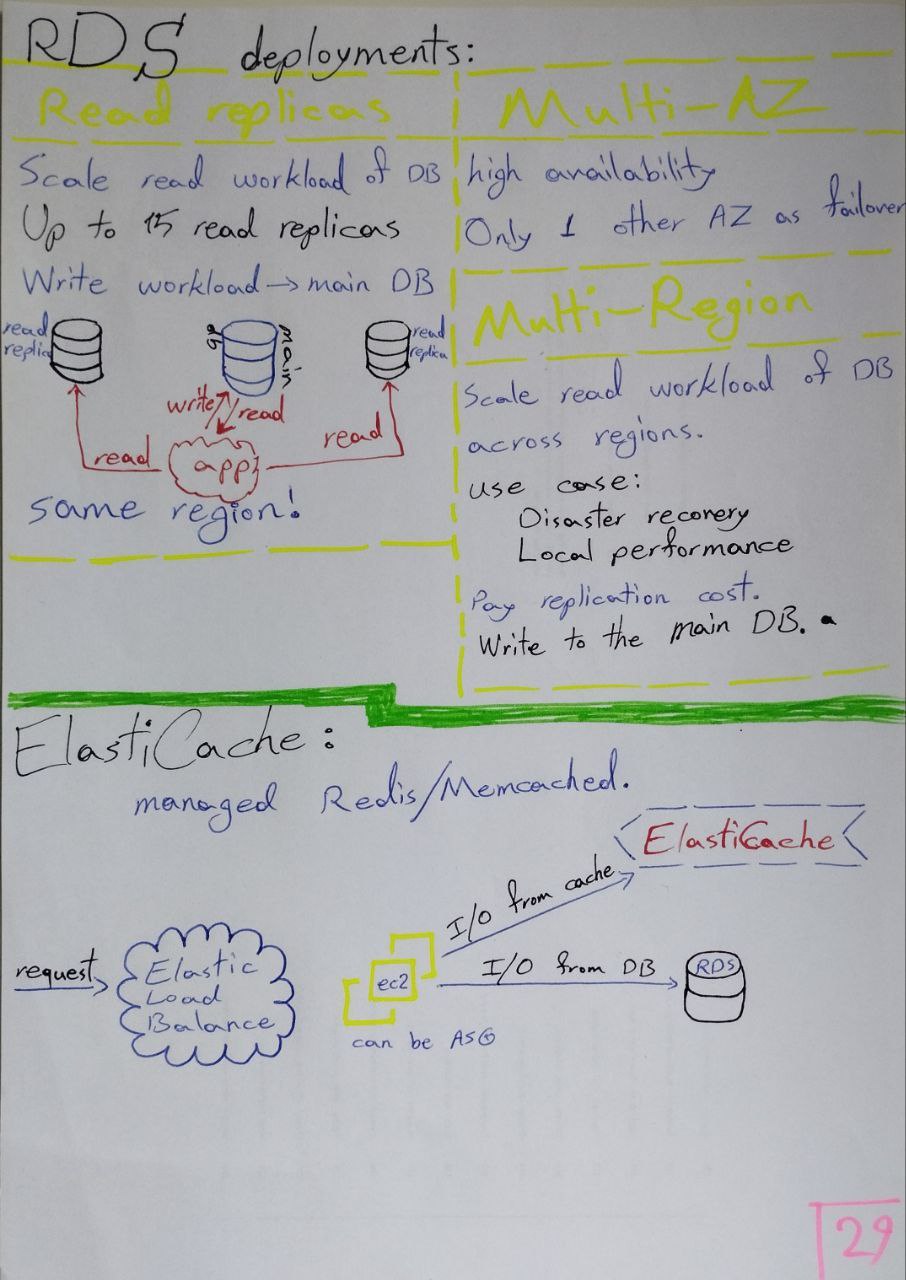 RDS deployments:
Read replicas
Scale read workload of DB
Up to 15 read replicas
Write workload → main DB
read replica
main DB
read replica
write
read
read
read
app
same region!
Multi-AZ
high availability
Only 1 other AZ as failover
Multi-Region
Scale read workload of DB
across regions.
use case:
Disaster recovery
Local performance
Pay replication cost.
Write to the main DB.
ElastiCache:
managed Redis/Memcached.
ElastiCache
I/O from cache
request
Elastic
Load
Balance
ec2
I/O from DB
RDS
can be ASG
29